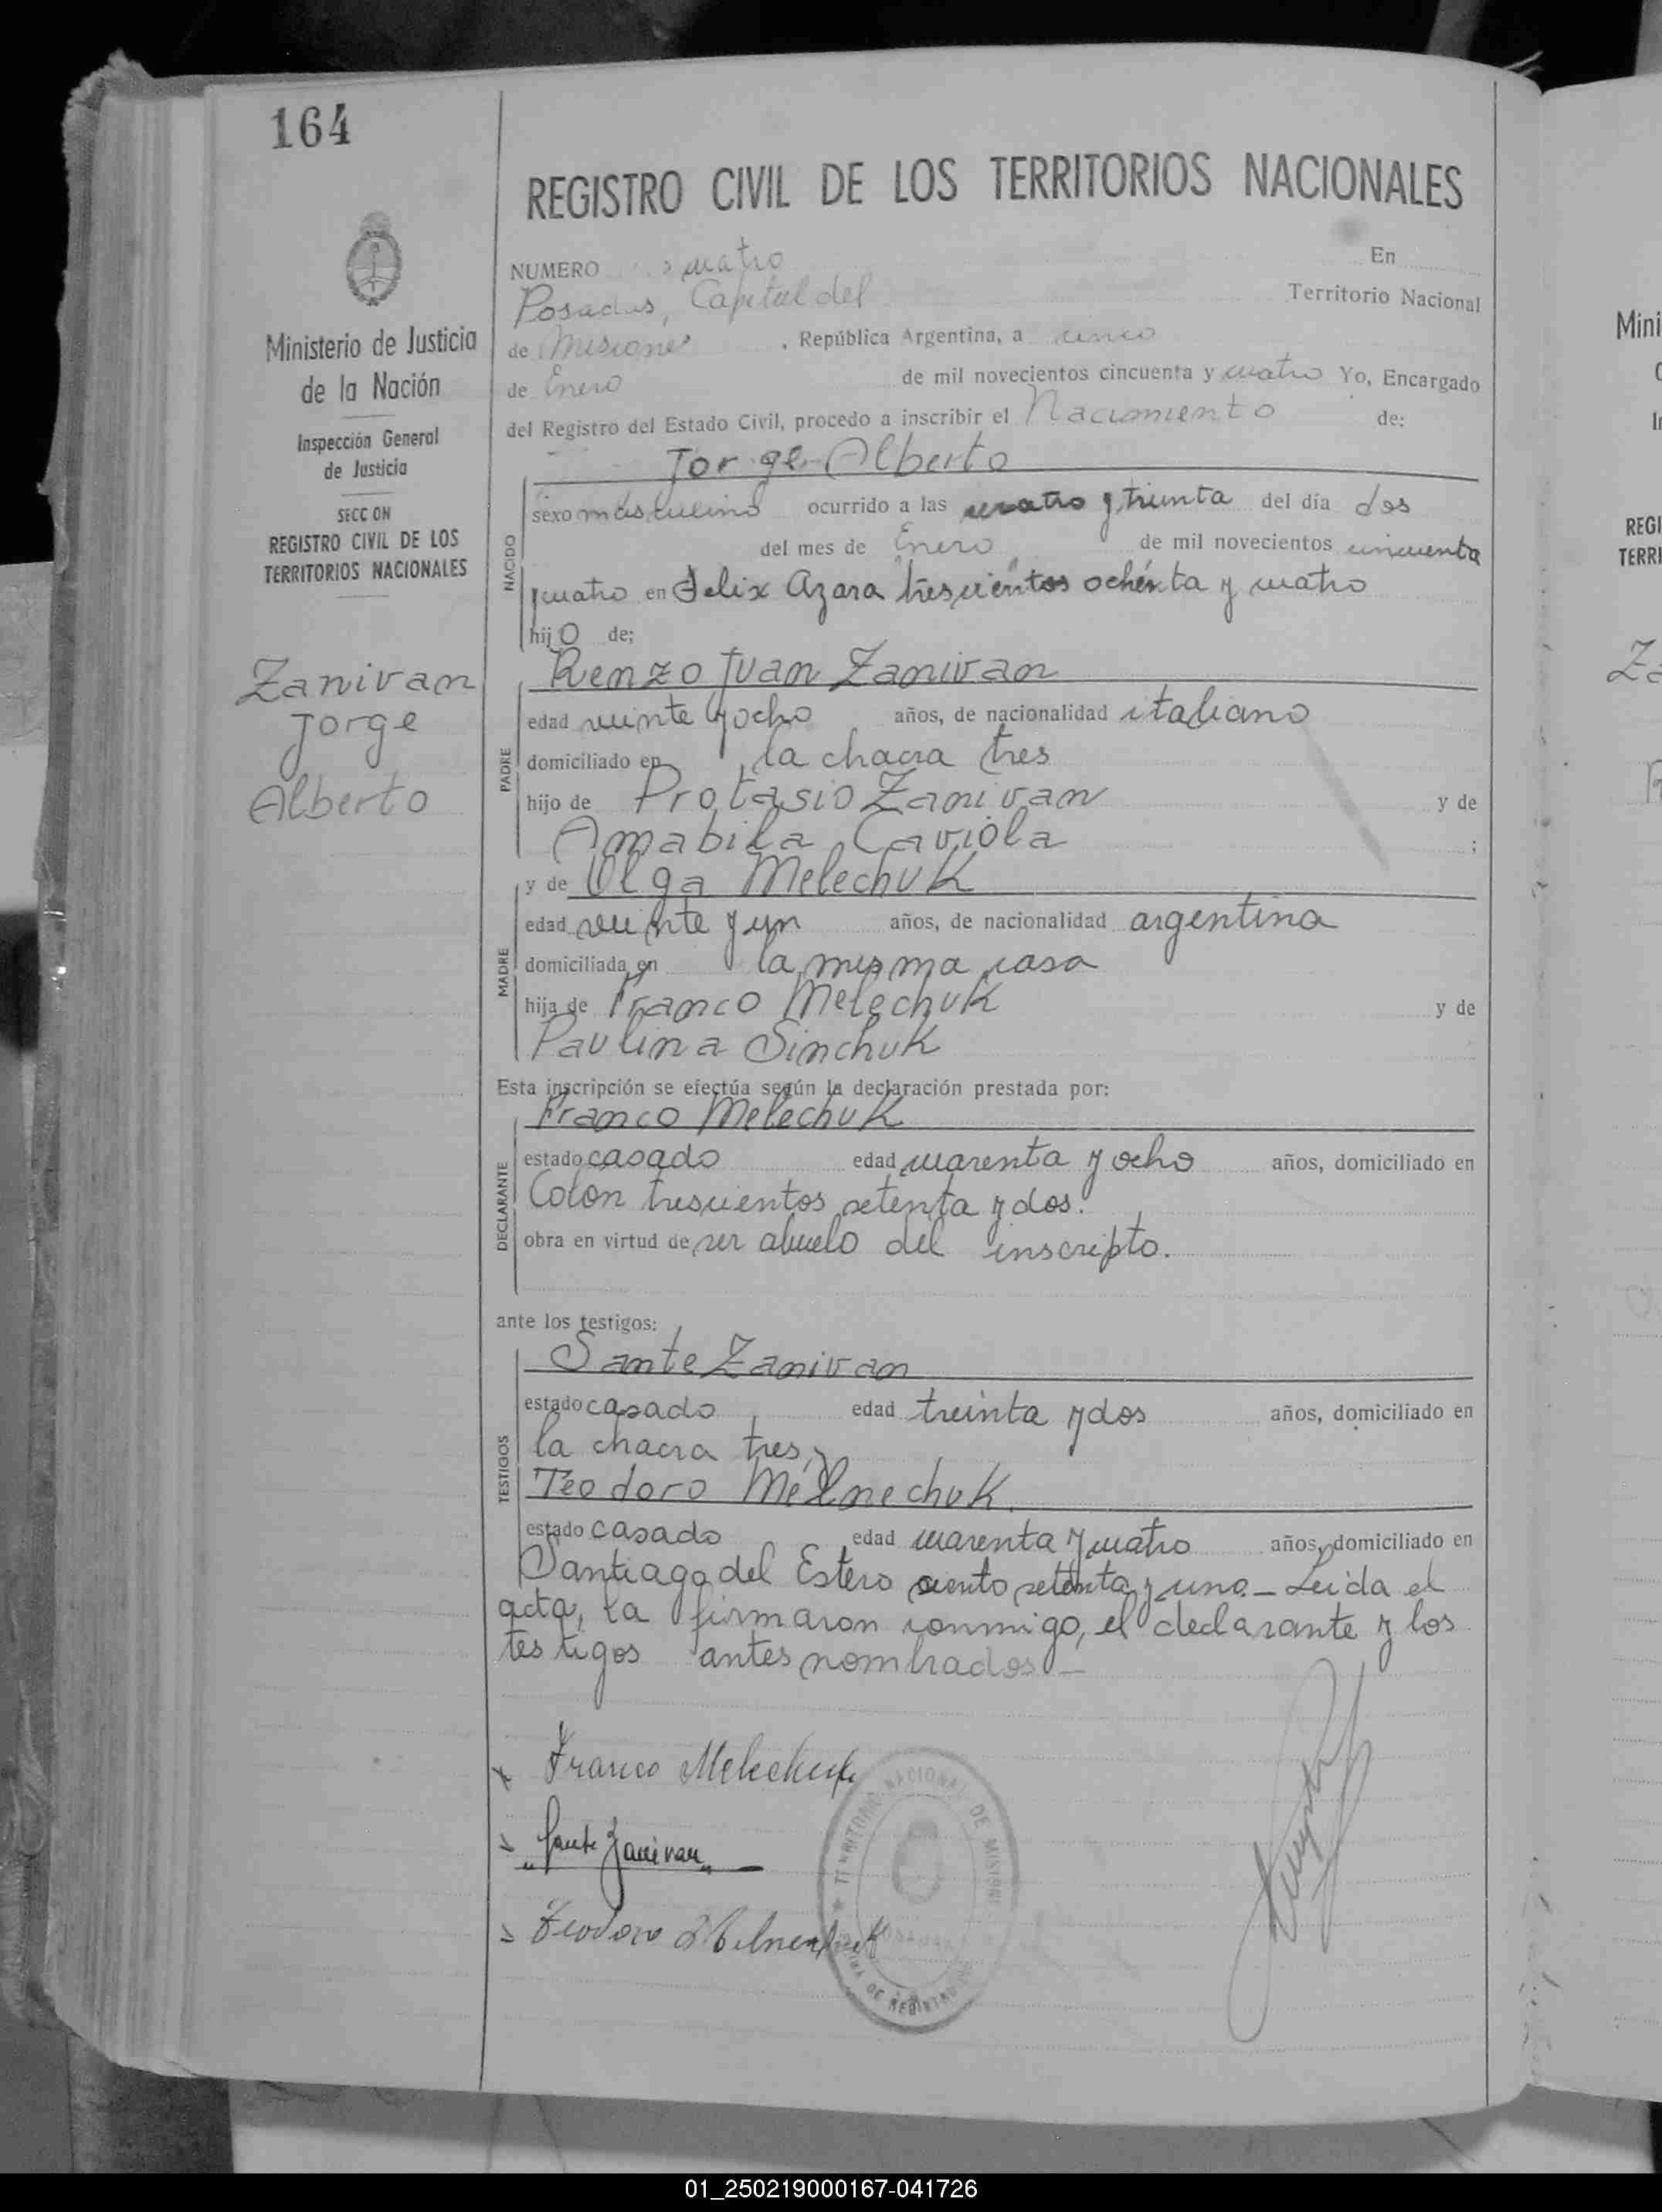 164
REGISTRO CIVIL DE LOS TERRITORIOS NACIONALES
NUMERO cuatro En
Posadas, Capital del Territorio Nacional
de Misiones, República Argentina, a cinco
de Enero de mil novecientos cincuenta y cuatro Yo, Encargado
del Registro del Estado Civil, procedo a inscribir el Nacimiento de:
Jorge Alberto
NACIDO
sexo masculino ocurrido a las cuatro y treinta del día dos
del mes de Enero de mil novecientos cincuenta
y cuatro en Felix Azara trescientos ochenta y cuatro
hijo de;
Renzo Juan Zanivan
PADRE
edad veinte y ocho años, de nacionalidad italiano
domiciliado en la chacra tres
hijo de Protasio Zanivan y de
Amabila Caviola ;
y de Olga Melechuk
MADRE
edad veinte y un años, de nacionalidad argentina
domiciliada en la misma casa
hija de Franco Melechuk y de
Paulina Sinchuk
Esta inscripción se efectúa según la declaración prestada por:
Franco Melechuk
DECLARANTE
estado casado edad cuarenta y ocho años, domiciliado en
Colon trescientos setenta y dos.
obra en virtud de ser abuelo del inscripto.
ante los testigos:
Sante Zanivan
TESTIGOS
estado casado edad treinta y dos años, domiciliado en
la chacra tres, y
Teodoro Melnechuk.
estado casado edad cuarenta y cuatro años, domiciliado en
Santiago del Estero ciento setenta y uno.— Leida el
acta, la firmaron conmigo, el declarante y los
testigos antes nombrados.—
Franco Melechuk
"Sante Zanivan"
Teodoro Melnechuk
TERRITORIO NACIONAL DE MISIONES
Ministerio de Justicia
de la Nación
Inspección General
de Justicia
SECCION
REGISTRO CIVIL DE LOS
TERRITORIOS NACIONALES
Zanivan
Jorge
Alberto
Mini
REGI
TERRI
Za
01_250219000167-041726